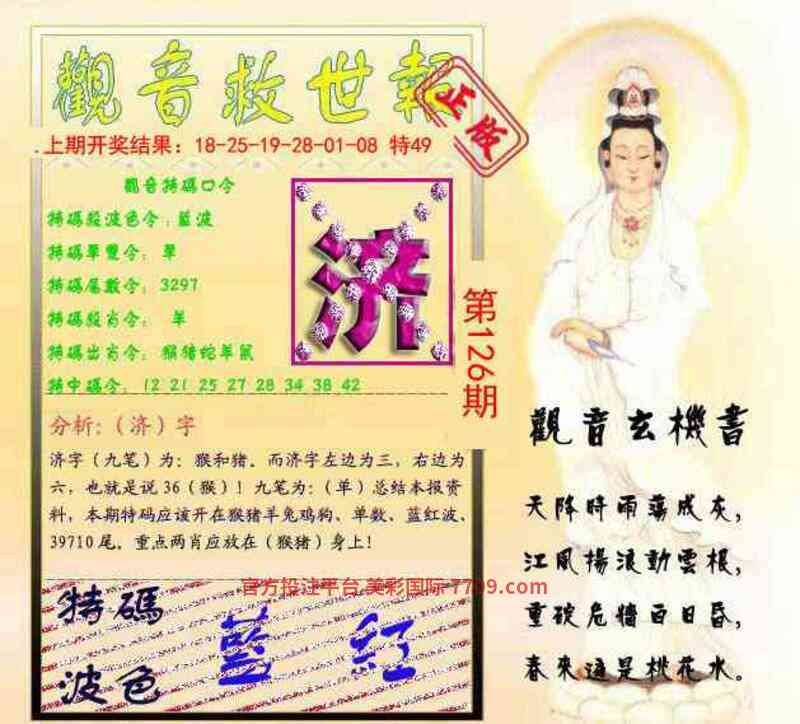 觀音救世報
正版
上期开奖结果：18-25-19-28-01-08 特49
觀音特碼口令
特碼殺波色令：藍波
特碼單雙令：單
特碼尾數令：3297
特碼殺肖令：羊
特碼出肖令：猴豬蛇羊鼠
特中碼令：12 21 25 27 28 34 38 42
济
第126期
分析:（济）字
济字（九笔）为：猴和猪．而济字左边为三，右边为
六，也就是说36（猴）！九笔为:（单）总结本报资
料，本期特码应该开在猴猪羊兔鸡狗、单数、蓝红波、
39710尾．重点两肖应放在（猴猪）身上!
官方投注平台 美彩国际-7709.com
特碼
波色
藍 紅
觀音玄機書
天降時雨蕩成灰，
江風揚浪動雲根，
重碇危檣白日昏，
春來遍是桃花水。